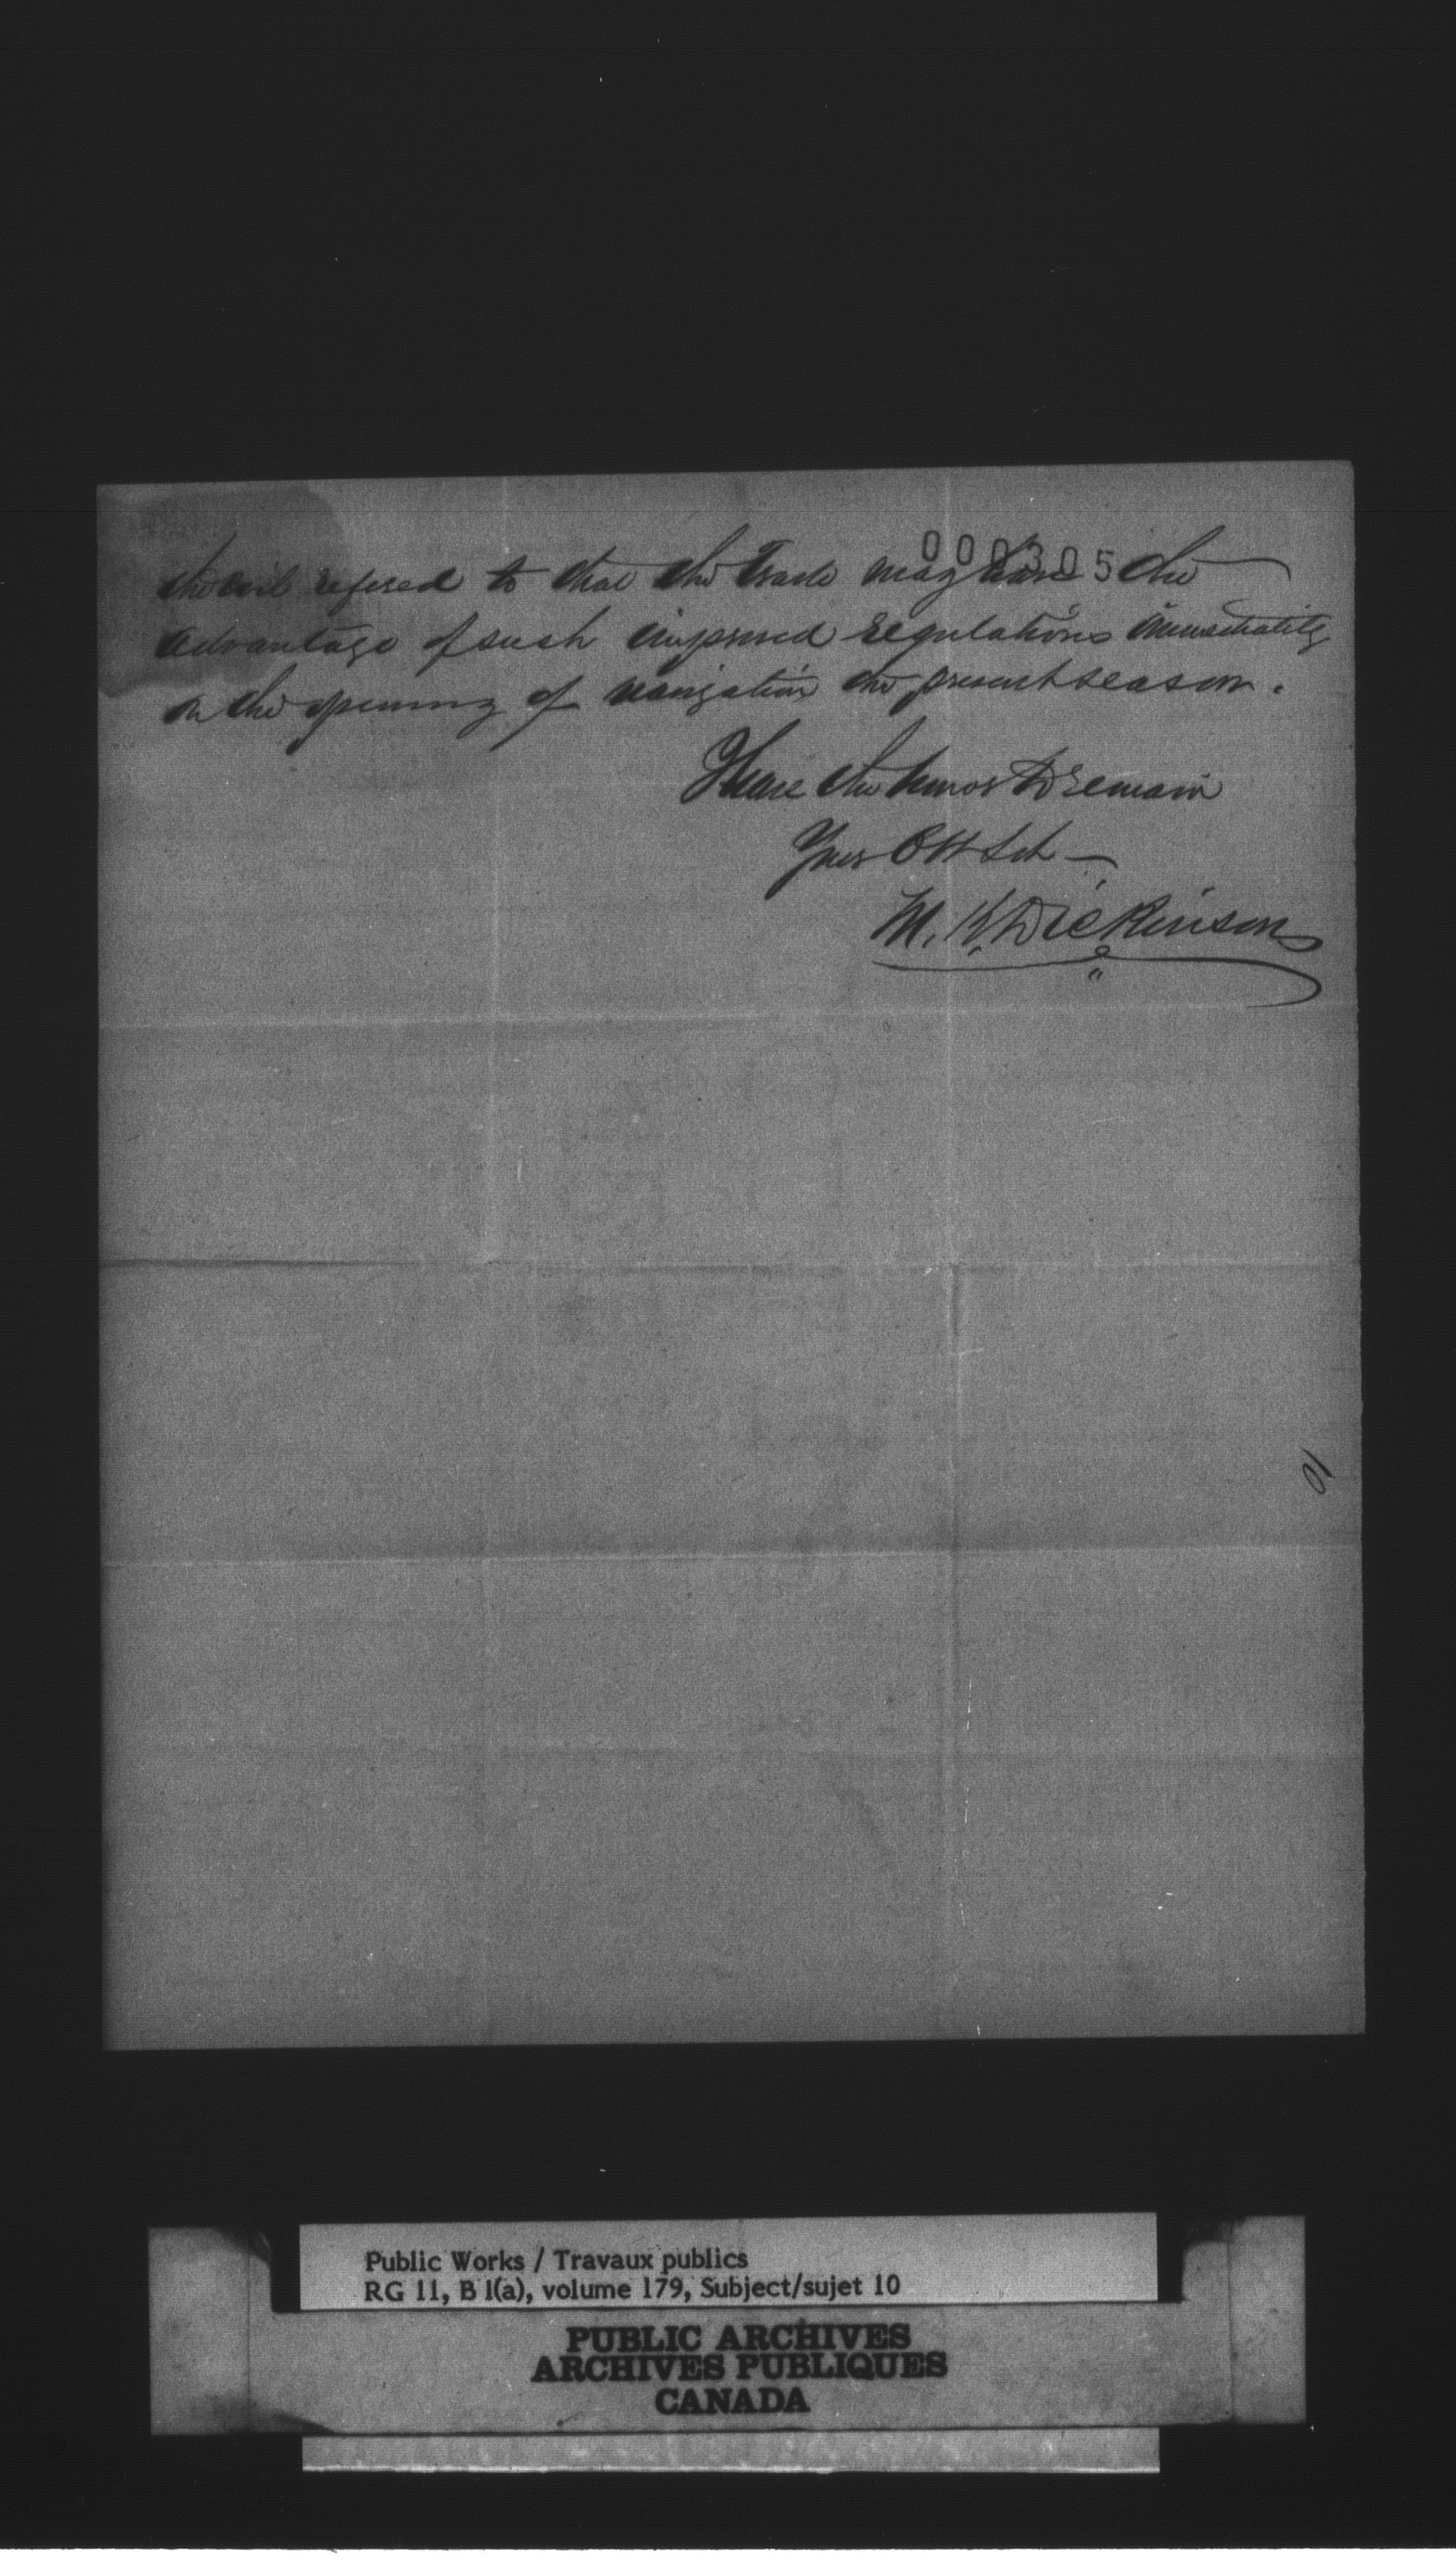 000305
the evil refered to that the Trade may have the
advantage of such improved regulations immediately
on the opening of navigation the present season.
I have the honor to remain
Your Obt Svt
M. K. Dickinson
10
Public Works / Travaux publics
RG 11, B 1(a), volume 179, Subject/sujet 10
PUBLIC ARCHIVES
ARCHIVES PUBLIQUES
CANADA